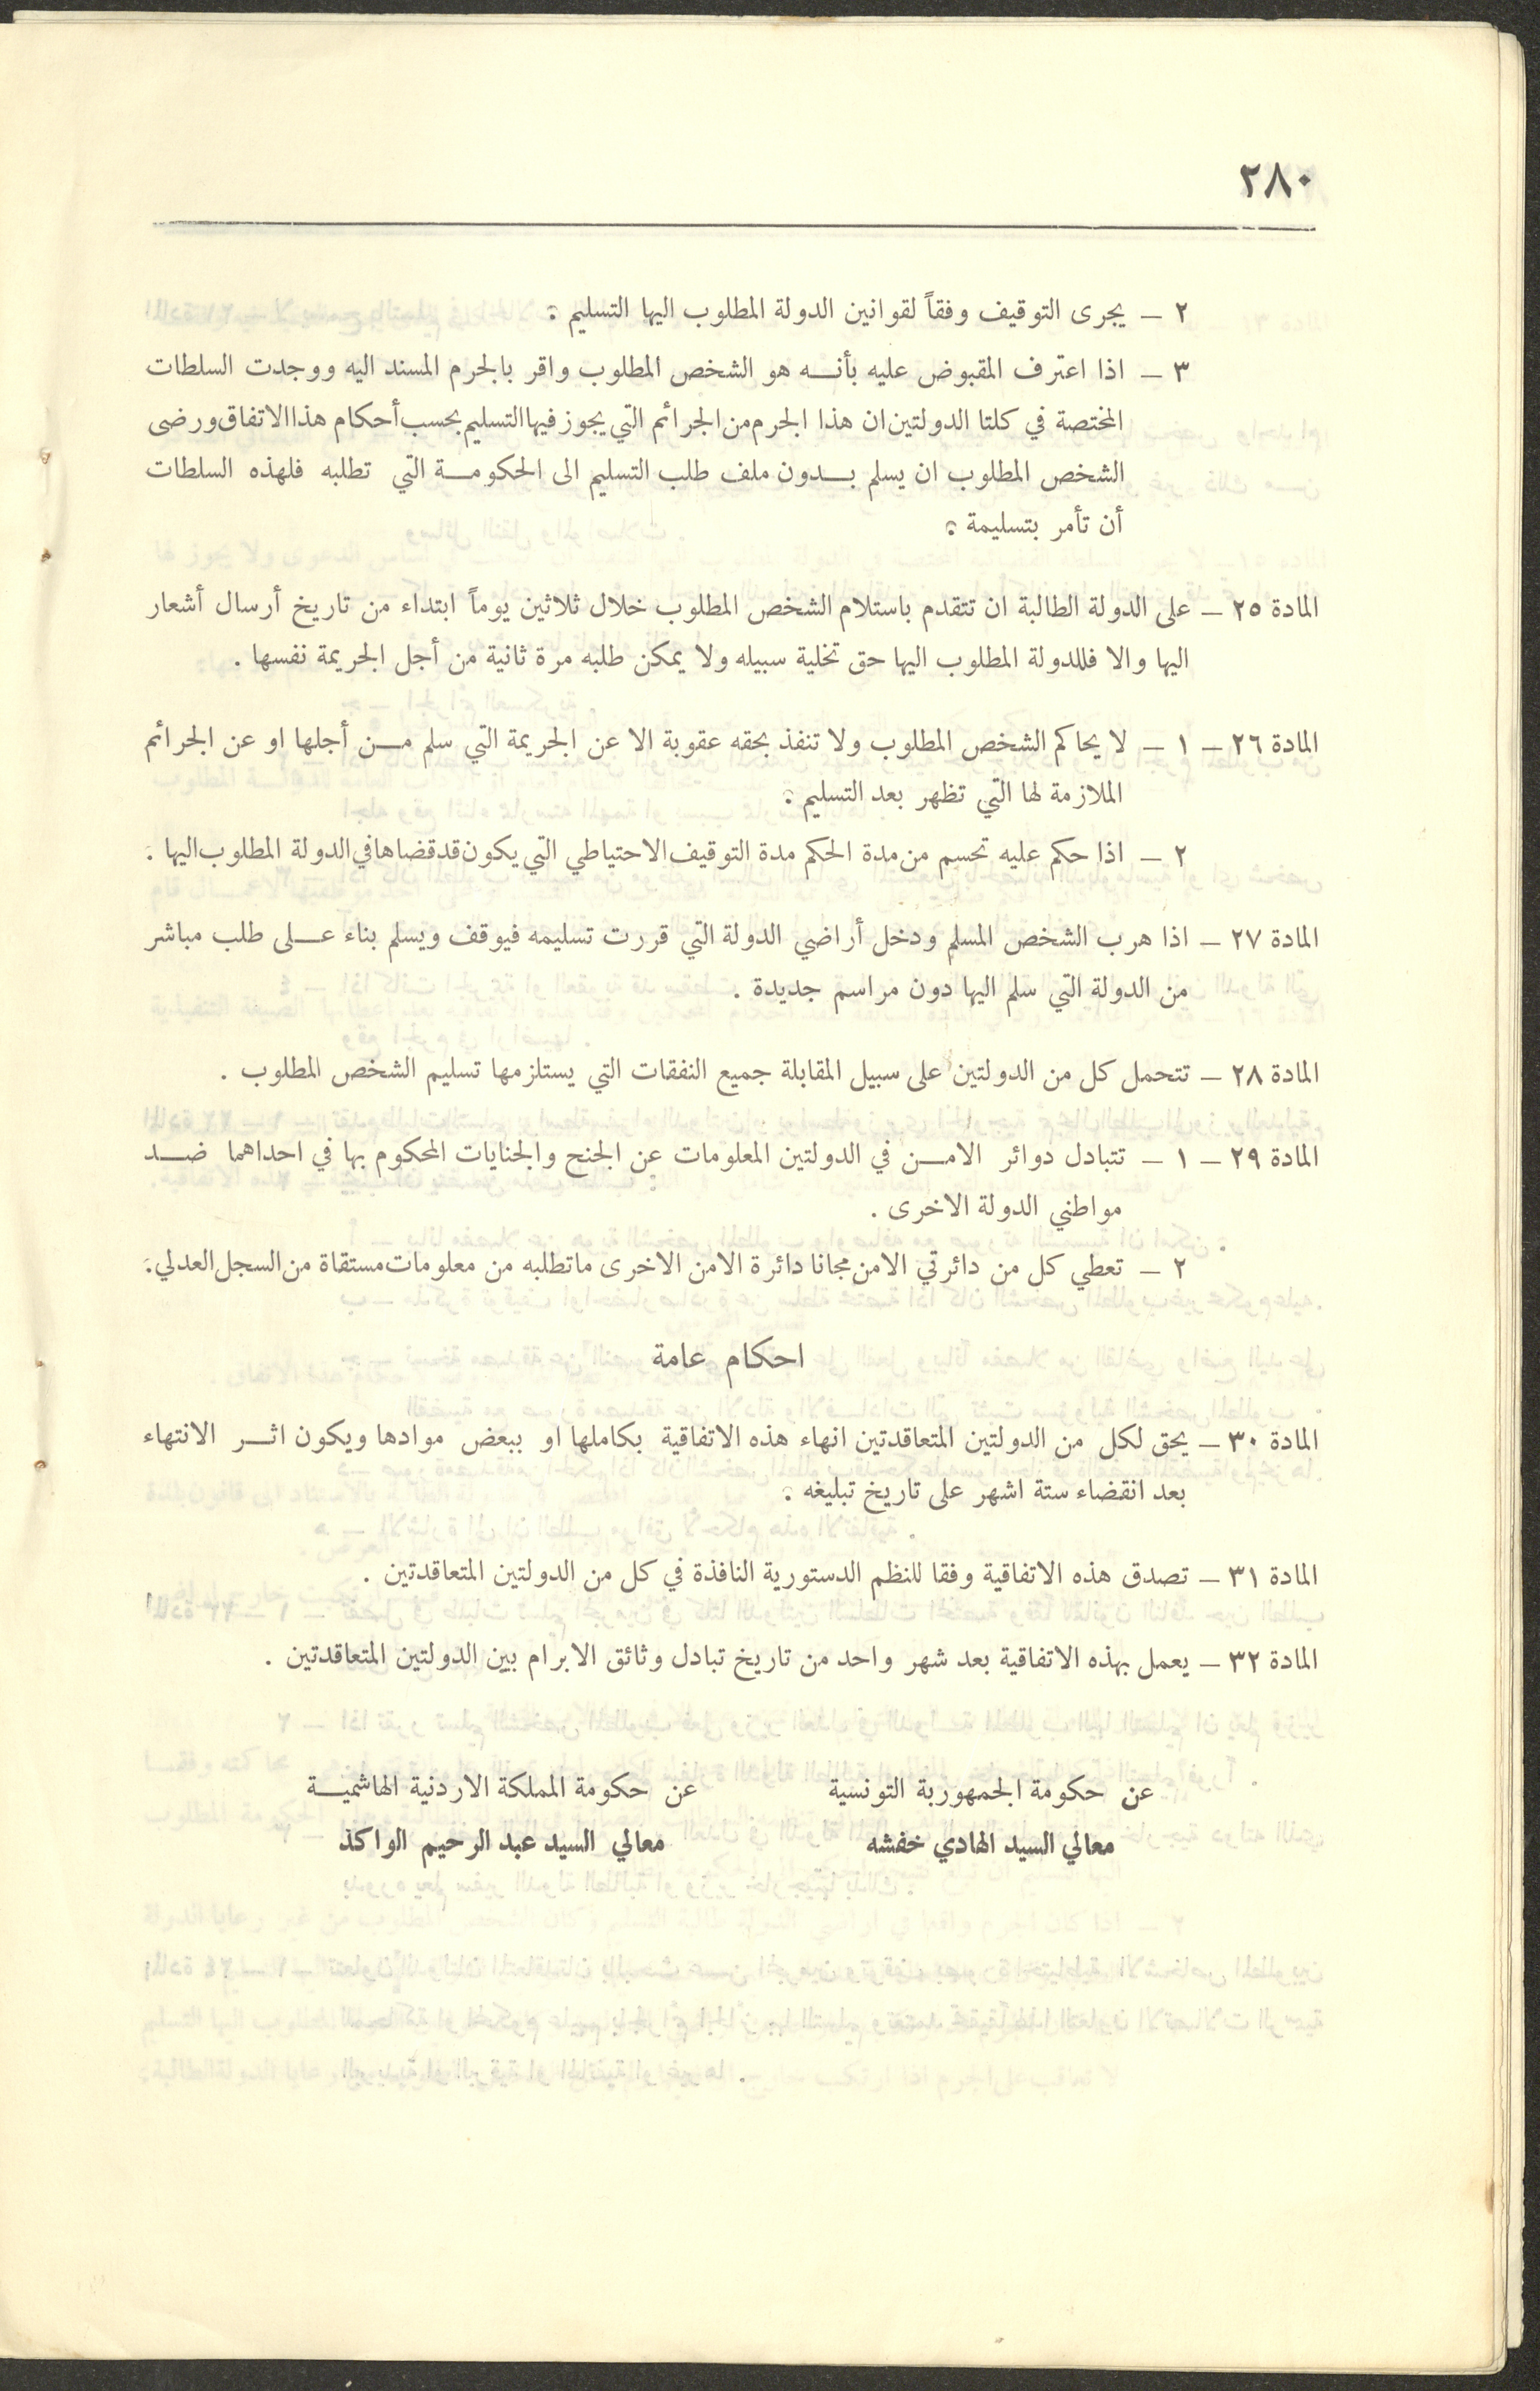 ٢٨٠
٢ – يجرى التوقيف وفقاً لقوانين الدولة المطلوب اليها التسليم .
٣ – اذا اعترف المقبوض عليه بأنه هو الشخص المطلوب واقر بالجرم المسند اليه ووجدت السلطات
المختصة في كلتا الدولتين ان هذا الجرم من الجرائم التي يجوز فيها التسليم بحسب أحكام هذا الاتفاق ورضى
الشخص المطلوب ان يسلم بدون ملف طلب التسليم الى الحكومة التي تطلبه فلهذه السلطات
أن تأمر بتسليمة .
المادة ٢٥ – على الدولة الطالبة ان تتقدم باستلام الشخص المطلوب خلال ثلاثين يوماً ابتداء من تاريخ أرسال أشعار
اليها والا فللدولة المطلوب اليها حق تخلية سبيله ولا يمكن طلبه مرة ثانية من أجل الجريمة نفسها .
المادة ٢٦ – ١ – لا يحاكم الشخص المطلوب ولا تنفذ بحقه عقوبة الا عن الجريمة التي سلم من أجلها او عن الجرائم
الملازمة لها التي تظهر بعد التسليم .
٢ – اذا حكم عليه تحسم من مدة الحكم مدة التوقيف الاحتياطي التي يكون قد قضاها في الدولة المطلوب اليها .
المادة ٢٧ – اذا هرب الشخص المسلم ودخل أراضي الدولة التي قررت تسليمه فيوقف ويسلم بناء على طلب مباشر
من الدولة التي سلم اليها دون مراسم جديدة .
المادة ٢٨ – تتحمل كل من الدولتين على سبيل المقابلة جميع النفقات التي يستلزمها تسليم الشخص المطلوب .
المادة ٢٩ – ١ – تتبادل دوائر الامن في الدولتين المعلومات عن الجنح والجنايات المحكوم بها في احداهما ضد
مواطني الدولة الاخرى .
٢ – تعطي كل من دائرتي الامن مجانا دائرة الامن الاخرى ماتطلبه من معلومات مستقاة من السجل العدلي .
احكام عامة
المادة ٣٠ – يحق لكل من الدولتين المتعاقدتين انهاء هذه الاتفاقية بكاملها او ببعض موادها ويكون اثر الانتهاء
بعد انقضاء ستة اشهر على تاريخ تبليغه .
المادة ٣١ – تصدق هذه الاتفاقية وفقا للنظم الدستورية النافذة في كل من الدولتين المتعاقدتين .
المادة ٣٢ – يعمل بهذه الاتفاقية بعد شهر واحد من تاريخ تبادل وثائق الابرام بين الدولتين المتعاقدتين .
عن حكومة الجمهورية التونسية
معالي السيد الهادي خفشه
عن حكومة المملكة الاردنية الهاشمية
معالي السيد عبد الرحيم الواكد